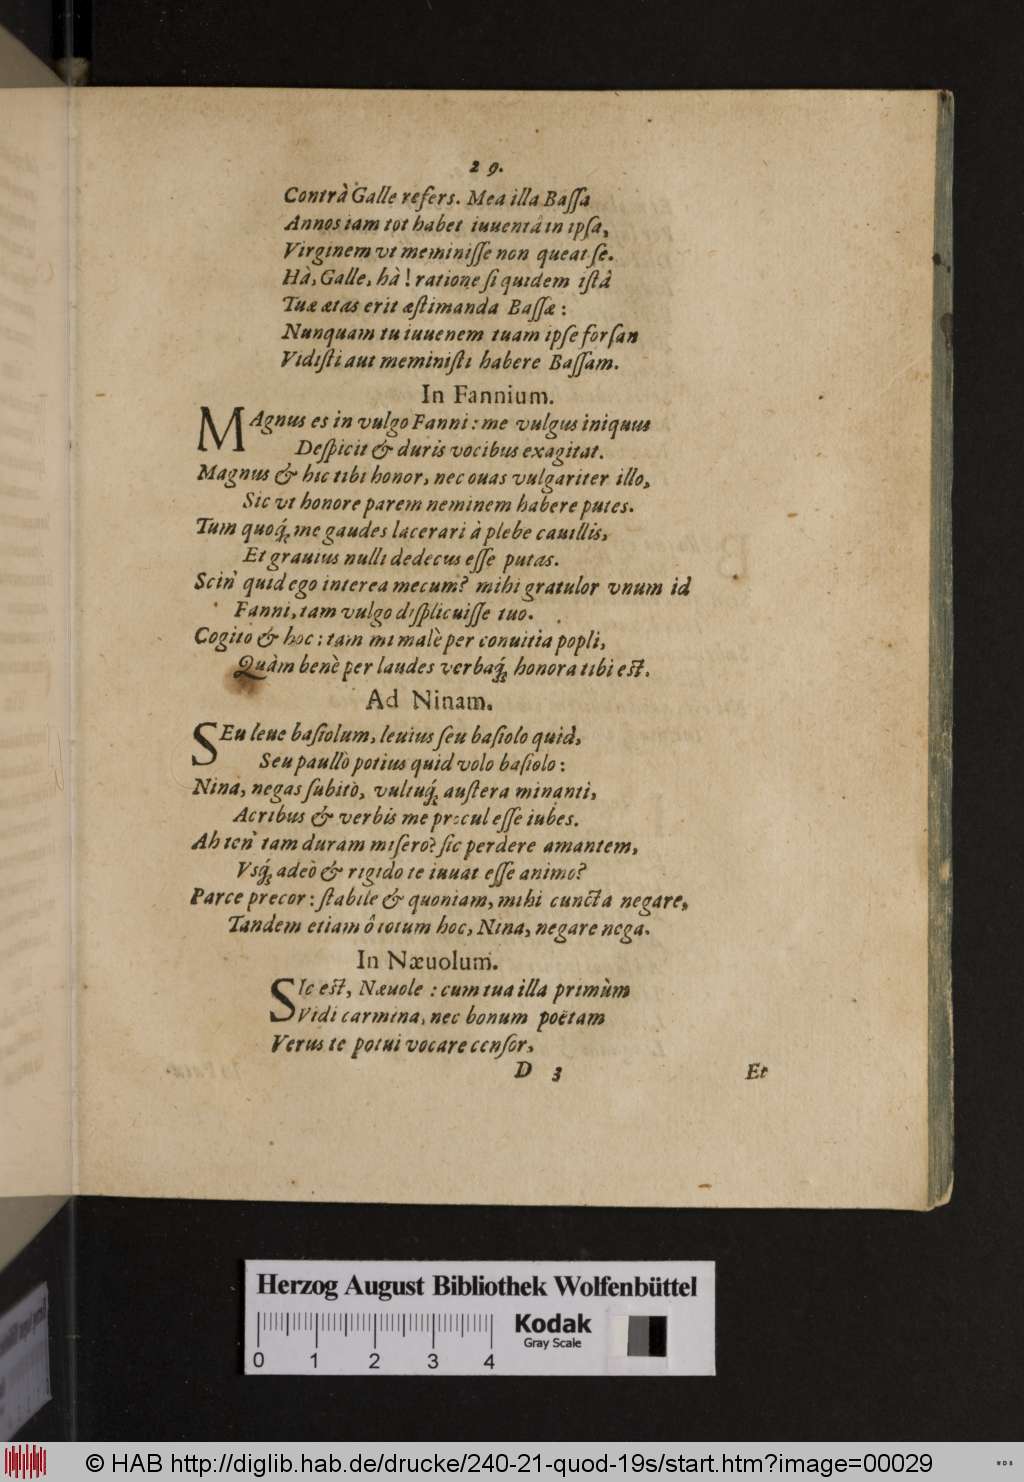 29.
Contrà Galle refers. Mea illa Baſſa
Annos iam tot habet iuuentâ in ipſa,
Virginem vt meminiſſe non queat ſe.
Hà, Galle, hà! ratione ſi quidem iſtâ
Tuæ ætas erit æſtimanda Baſſæ:
Nunquam tu iuuenem tuam ipſe forſan
Vidiſti aut meminiſti habere Baſſam.
In Fannium.
MAgnus es in vulgo Fanni: me vulgus iniquus
Deſpicit & duris vocibus exagitat.
Magnus & hic tibi honor, nec ouas vulgariter illo,
Sic vt honore parem neminem habere putes.
Tum quoq́; me gaudes lacerari à plebe cauillis,
Et grauius nulli dedecus eſſe putas.
Scin' quid ego interea mecum? mihi gratulor vnum id
Fanni, tam vulgo diſplicuiſſe tuo.
Cogito & hoc: tam mi malè per conuitia popli,
Quàm benè per laudes verbaq́; honora tibi eſt.
Ad Ninam.
SEu leue baſiolum, leuius ſeu baſiolo quid,
Seu paullò potius quid volo baſiolo:
Nina, negas ſubitò, vultuq́; auſtera minanti,
Acribus & verbis me procul eſſe iubes.
Ah ten' tam duram miſero? ſic perdere amantem,
Vsq́; adeò & rigido te iuuat eſſe animo?
Parce precor: ſtabile & quoniam, mihi cuncta negare,
Tandem etiam ô totum hoc, Nina, negare nega.
In Næuolum.
SIc eſt, Næuole: cum tua illa primùm
Vidi carmina, nec bonum poëtam
Verus te potui vocare cenſor,
D 3 Et
Herzog August Bibliothek Wolfenbüttel
Kodak
Gray Scale
0 1 2 3 4
© HAB http://diglib.hab.de/drucke/240-21-quod-19s/start.htm?image=00029